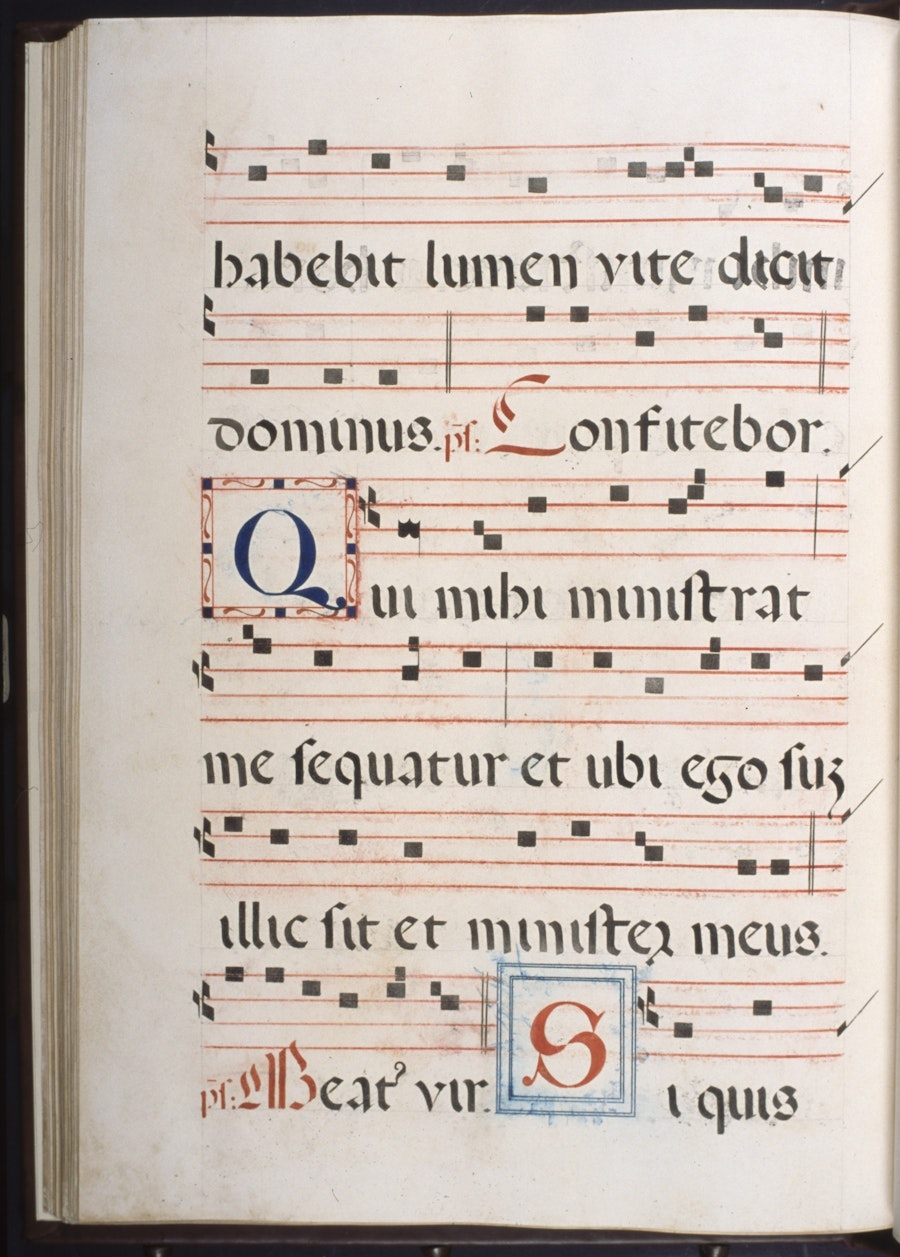 habebit lumen vite dicit
dominus. ps: Confitebor.
Qui mihi ministrat
me sequatur et ubi ego suꝫ
illic sit et minister meus.
ps: Beatꝰ vir. Si quis